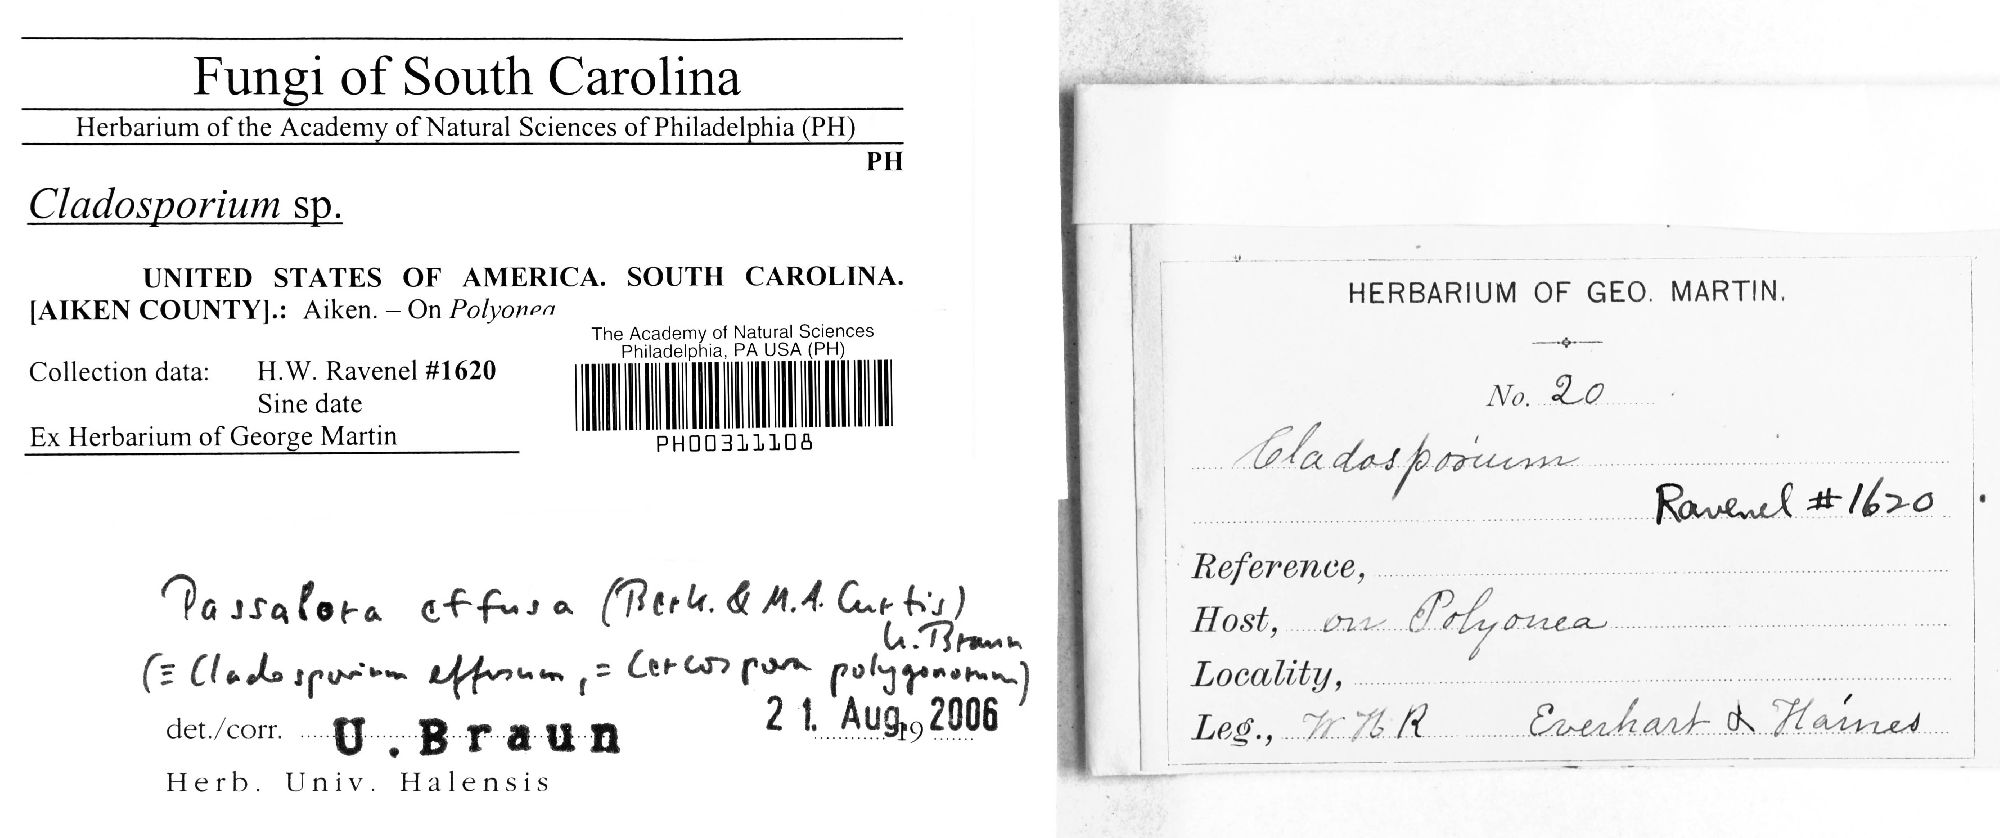 Fungi of South Carolina
Herbarium of the Academy of Natural Sciences of Philadelphia (PH)
PH
Cladosporium sp.
UNITED STATES OF AMERICA. SOUTH CAROLINA.
[AIKEN COUNTY].: Aiken. – On Polyonea
The Academy of Natural Sciences
Philadelphia, PA USA (PH)
Collection data: H.W. Ravenel #1620
Sine date
Ex Herbarium of George Martin
PH00311108
Passalora effusa (Berk. & M.A. Curtis)
U. Braun
(≡ Cladosporium effusum, = Cercospora polygonorum)
21. Aug. 2006
det./corr. U. Braun 19
Herb. Univ. Halensis
HERBARIUM OF GEO. MARTIN.
No. 20
Cladosporium
Ravenel #1620
Reference,
Host, on Polyonea
Locality,
Leg., W H R Everhart & Haines